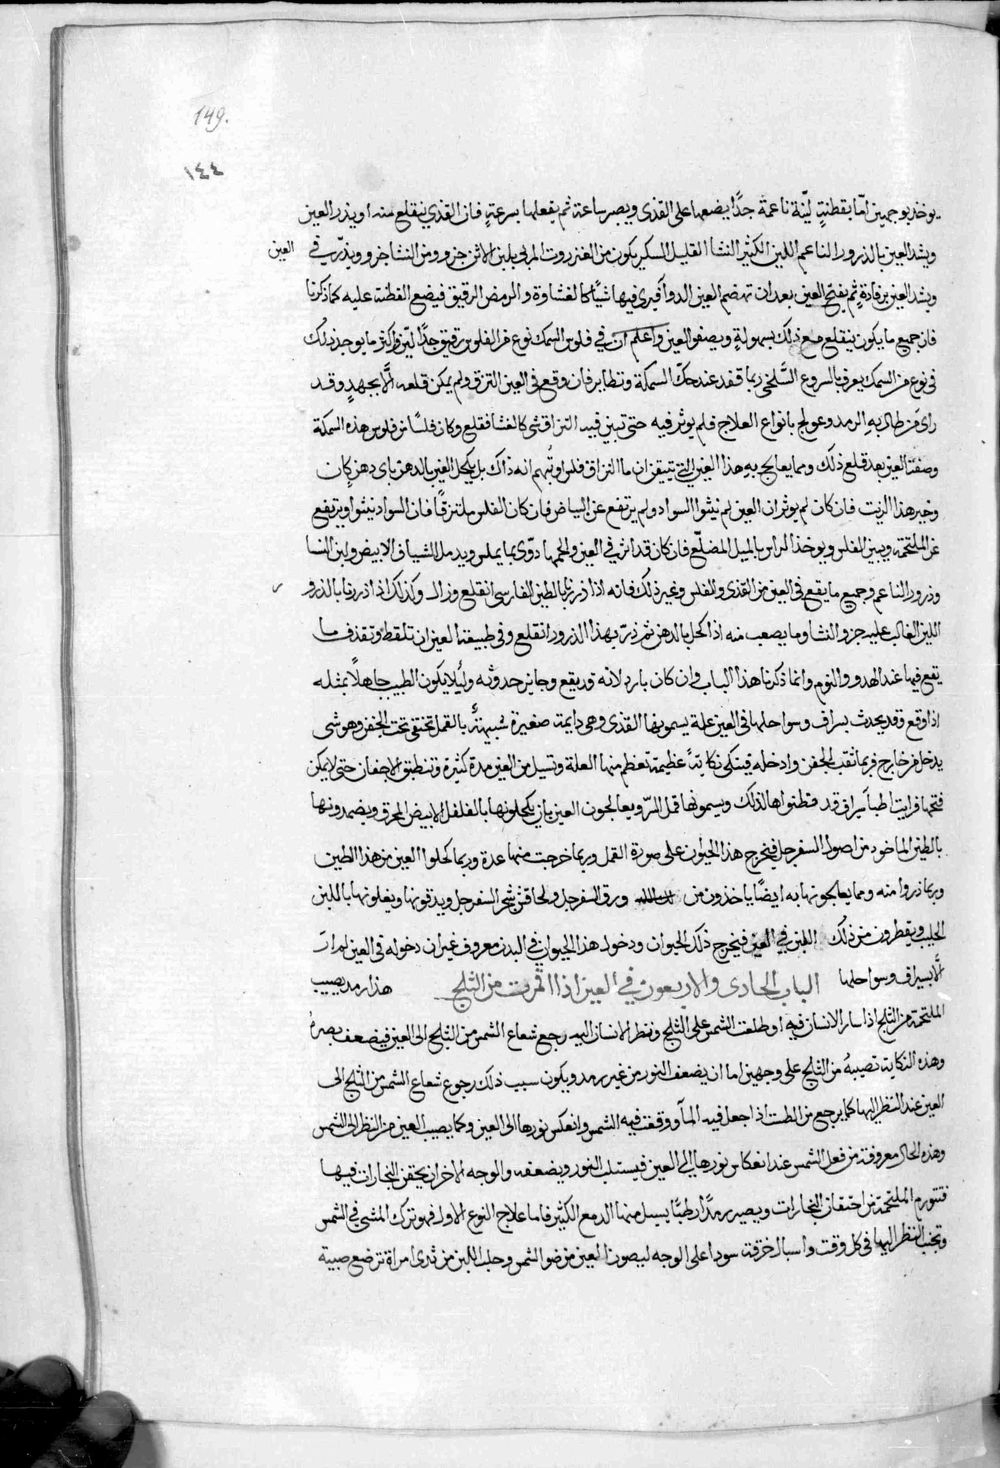 149.
١٤٤
يوخذ بوجهين اما بقطنة لينة ناعمة جدًا يضعها على القذى ويصبر ساعة ثم يقلعها بسرعةٍ فان القذى ينقلع منه او يذر العين
ويشد العين بالذرور الناعم اللين الكثير النشا القليل السكر يكون من العنزروت المربى بلبن الاتن جزو ومن النشا جزو ويذر به في العين
ويشد العين برفادةٍ ثم يفتح العين بعد ان تهضم العين الدوآ فيرى فيها شيًا كالغشاوة والرمص الرقيق فيضع القطنة عليه كما ذكرنا
فان جميع ما يكون ينقلع مع ذلك بسهولةٍ ويصفو العين واعلم ان في فلوس السمك نوع من الفلوس رقيق جدًا لين واكثر ما يوجد ذلك
في نوع من السمك يعرف بالسروع السلخى ربما قفد عند حك السمكة وتطاير فان وقع في العين التزق ولم يمكن قلعه الا بجهدٍ وقد
راى من طال به الرمد وعولج بانواع العلاج فلم يوثر فيه حتى تبين فيه التزاق شى كالغشا فقلع وكان فلسًا من فلوس هذه السمكة
وصفت العين بعد قلع ذلك ومما يعالج به هذا العين التى يتيقن ان ما التزاق فلس او تُهم انه ذاك بل يكحل العين بالدهن باى دهن كان
وخير هذا الزيت فان كان لم يوثر ان العين لم نيثوا السواد ولم يرتفع عن البياض فان كان الفلس ملتزقًا فان السواد نيثوا ويرتفع
عن الملتحمة ويبين الفلس ويوخذ الراس بالميل المضلع فان كان قد اثر في العين ولحمها دوى بما يملس ويدمل الشياف الابيض ولبن النسا
وذرور الناعم وجميع ما يقع في العين من القذى والفلس وغير ذلك فانه اذا ذر بالطين الفارسى انقلع وزال وكذلك اذا ذررنا بالذرو
اللين الغالب عليه جزو النشا وما يصعب منه اذا كحل بالدهن ثم ذر بهذا الذرور انقلع وفي طبيعة العين ان تلقط وتقذف ما
يقع فيها عند الهدو والنوم وانما ذكرنا هذا الباب وان كان بارد لانه قد يقع وجايز حدوثه وليلا يكون الطبيب جاهلًا بمثله
اذا وقع وقد يحدث بسراف وسواحلها في العين علة يسمونها القذى وهى دابة صغيرة شبيهةٌ بالقمل تختفى تحت الجفن وهو شى
يدخل من خارج فربما ثقب الجفن وادخله فينكى نكاية عظيمة تعظم منها العلة وتسيل من العين مدة كثيرة وتنطبق الاجفان حتى لا يمكن
فتحها فرايت اطبآ سراف قد فطنوا لذلك ويسمونها قمل السر ويعالجون العين بان يكحلونها بالفلفل الابيض المحرق ويضمدونها
بالطين الماخوذ من اصول السفرجل فيخرج هذا الحيوان على صورة القمل وربما خرجت منها عدة وربما كحلوا العين من هذا الطين
وربما ذروا منه ومما يعالجونها به ايضًا ياخذون من ورق السفرجل ولحا قشر شجر السفرجل ويدقونها ويغلونها باللبن
الحليب ويقطرون من ذلك اللبن في العين فيخرج ذلك الحيوان ودخول هذا الحيوان في البدن معروف غير ان دخوله في العين لم ارات
الا بسيراف وسواحلها الباب الحادى والاربعون في العين اذا اقمرت من الثلج هذا رمد يصيب
الملتحمة من الثلج اذا سار الانسان فيه او طلعت الشمس على الثلج ونظر الانسان اليه رجع شعاع الشمس من الثلج الى العين فيضعف بصرهُ
وهذه النكاية تصيبهُ من الثلج على وجهين اما ان يضعف النور من غير رمد ويكون سبب ذلك رجوع شعاع الشمس من الثلج الى
العين عند النظر اليها كما يرجع من الطست اذا جعل فيه المآ ووقعت فيه الشمس وانعكس نورها الى العين وكما يصيب العين من النظر الى الشمس
وهذه الحال معروفة من فعل الشمس عند انعكاس نورها الى العين فيستلب النور ويضعفه والوجه الاخر ان يحتقن البخارات فيها
فتتورم الملتحمة من احتقان البخارات ويصير رمدًا رطبًا يسيل منها الدمع الكثير فاما علاج النوع الاول فهو ترك المشى في الشمس
وتجنب النظر اليها في كل وقت واسبال خرقة سودا على الوجه ليصون العين من ضو الشمس وحلب اللبن من ثدى امراة ترضع صبية